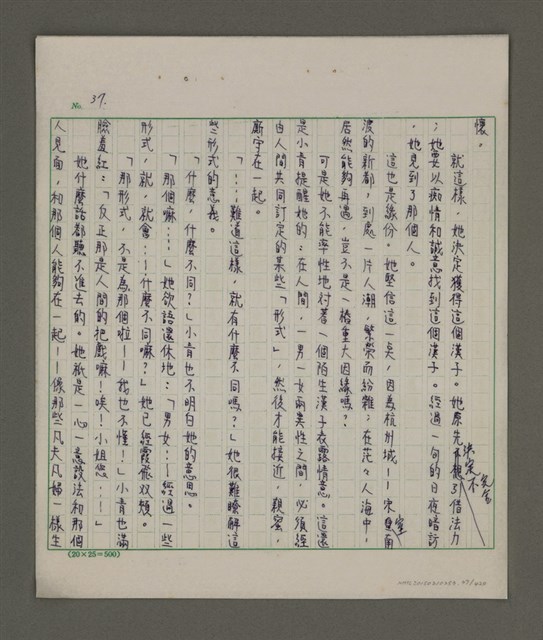 No. 37.
懷。
就這樣，她決定獲得這個漢子。她原先決定不引借法力
；她要以痴情和誠意找到這個漢子。經過一旬的日夜暗訪
，她見到了那個人。
這也是緣份。她堅信這一點，因為杭州城——宋室南
渡的新都，到處一片人潮，繁榮而紛雜；在茫々人海中，
居然能夠再遇，豈不是一樁重大因緣嗎？
可是她不能率性地對著一個陌生漢子表露情意。這還
是小青提醒她的：在人間，一男一女兩異性之間，必須經
由人間共同訂定的某些「形式」，然後才能接近，親蜜，
廝守在一起。
「……難道這樣，就有什麼不同嗎？」她很難瞭解這
些形式的意義。
「什麼，什麼不同？」小青也不明白她的意思。
「那個嘛……」她欲語還休地：「男女……經過一些
形式，就，就會……什麼不同嘛？」她已經霞飛双頰。
「那形式，不是為那個啦——我也不懂！」小青也滿
臉羞紅：「反正那是人間的把戲嘛！唉！小姐您……」
她什麼話都聽不進去的。她祇是一心一意設法和那個
人見面，和那個人能夠在一起——像那些凡夫凡婦一樣生
(20×25=500)